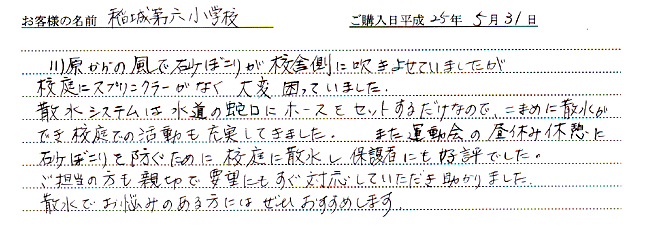 お客様の名前 稲城第六小学校 ご購入日平成 25年 5月31日
川原からの風で砂ぼこりが校舎側に吹きよせていましたが
校庭にスプリンクラーがなく大変困っていました。
散水システムは水道の蛇口にホースをセットするだけなので、こまめに散水が
でき校庭での活動も充実してきました。 また運動会の昼休み休憩に
砂ぼこりを防ぐために校庭に散水し保護者にも好評でした。
ご担当の方も親切で要望にもすぐ対応していただき助かりました。
散水でお悩みのある方にはぜひおすすめします。